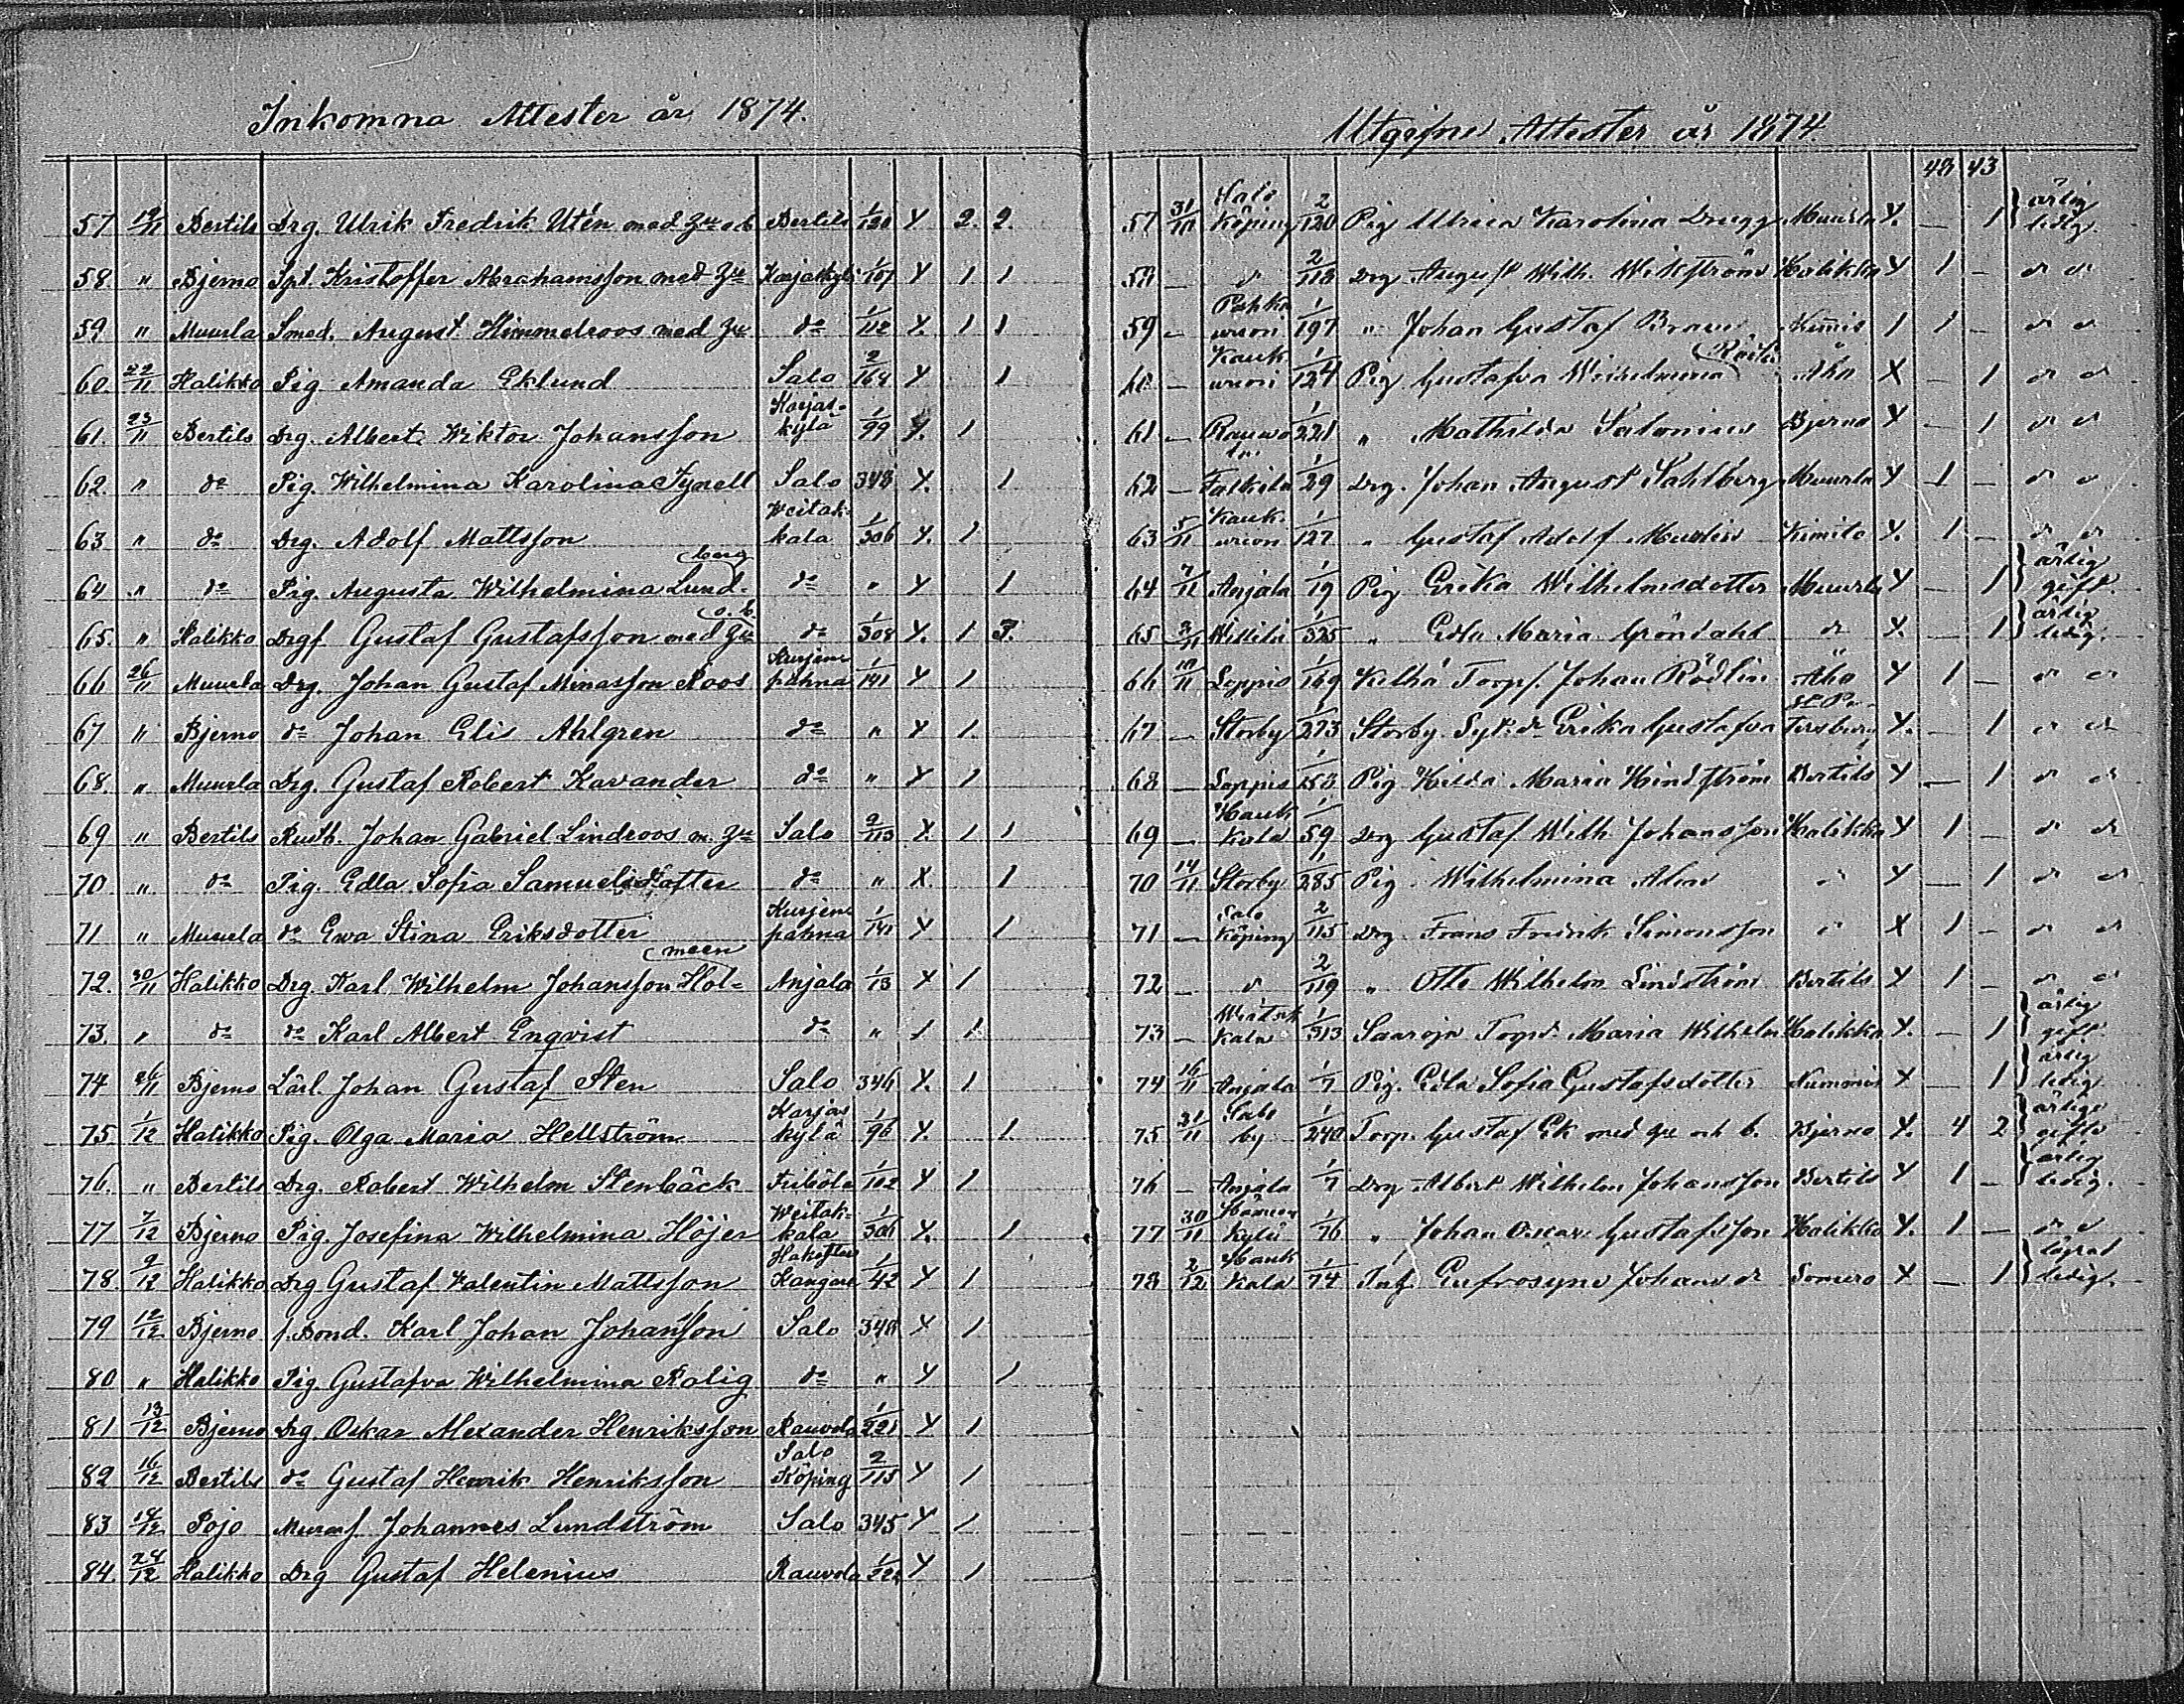 Inkomna Attester år 1874.
57 19/11 Bertils Drg. Ulrik Fredrik Utén med hu o b Bertils 1/120 X 2. 2.
58. " Bjerno Spt. Kristoffer Abrahamsson med hu Karjaskylä 1/107 X 1 1
59 " Muurla Smed. August Himmelroos med hu do 1/112 X. 1 1
60. 22/11 Halikko Pig. Amanda Eklund Salo 2/164 X 1
61. 23/11 Bertils Drg. Albert Wiktor Johansson Karjas-kylä 1/99 X. 1
62. " do Pig. Wilhelmina Karolina Tynell Salo 348 X. 1
63. " do Drg. Adolf Mattsson Weitak-kala 1/306 X. 1
64 " do Pig. Augusta Wilhelmina Lund-berg do " X 1
65. " Halikko Drgf Gustaf Gustafsson med hu o. b do 1/308 X. 1 3.
66 26/11 Muurla Drg. Johan Gustaf Minasson Roos Kurjenpahna 1/141 X 1
67 " Bjerno do Johan Elis Ahlgren do " X 1
68. " Muurla Drg. Gustaf Robert Kavander do " X 1
69 " Bertils Rusth. Johan Gabriel Lindroos m. hu Salo 2/113 X. 1 1
70. " do Pig. Edla Sofia Samuelsdotter do " X. 1
71 " Muurla do Ewa Stina Eriksdotter Kurjenpahna 1/141 X 1
72. 30/11 Halikko Drg. Karl Wilhelm Johansson Hol-meen Anjala 1/13 X 1
73. " do do Karl Albert Enqvist do " 1 1
74 26/11 Bjerno Lärl. Johan Gustaf Sten Salo 346 X. 1
75. 1/12 Halikko Pig. Olga Maria Hellström Karjaskylä 1/96 X. 1.
76. " Bertils Drg. Robert Wilhelm Stenbäck Friböle 1/102 X 1
77 7/12 Bjerno Pig. Josefina Wilhelmina Höjer Weitak-kala 1/306 X. 1
78. 9/12 Halikko Drg Gustaf Valentin Mattsson Kangare 1/42 X 1
79 12/12 Bjerno f. Bond. Karl Johan Johansson Salo 348 X 1
80 " Halikko Pig. Gustafva Wilhelmina Rolig do " X 1
81 13/12 Bjerno Drg Oskar Alexander Henriksson Rauvola 1/221 X 1
82 16/12 Bertils do Gustaf Henrik Henriksson Salo Köping 2/115 X 1
83 18/12 Pojo Muraf. Johannes Lundström Salo 345 X 1
84. 24/12 Halikko Drg Gustaf Helenius Rauvola X 1
Utgifne Attester år 1874
48 43
57 31/10 Salo Köping 2/120 Pig Ulrica Karolina Drugg Muurla X. — 1 ärlig ledig.
58 — d 2/118 Drg August Wilh. Wikström Halikko X 1 — d d
59 — 1/197 " Johan Gustaf Braun Kimis 1 1 — d d
60 — 1/124 Pig Gustafva Wilhelmina Åbo X — 1 d d
61 — 1/221 " Mathilda Salonius Bjerno X — 1 d d
62 — 1/29 Drg. Johan August Sahlberg Muurla X 1 — d d
63 5/11 1/127 " Gustaf Adolf Kimito X. 1 — d d
64 7/11 Anjala 1/19 Pig Erika Wilhelmsdotter Muurla X — 1 ärlig gift.
65 1/325 " Edla Maria Gröndahl d X. — 1 ärlig ledig.
66 10/11 Leppis 1/169 Torpf. Johan Rödlin Åbo X 1 — d d
67 — Storby 1/273 Storby Erika Gustafva St Petersburg X. — 1 d d
68 — Leppis 1/153 Pig Hilda Maria Hindström Bertils X — 1 d d
69 — Haukkala 1/59 Drg Gustaf Wilh. Johansson Halikko X 1 — d d
70 14/11 Storby 1/285 Pig. Wilhelmina Alen d X — 1 d d
71 — Salo Köping 2/115 Drg. Frans Fredrik Simonsson d X 1 — d d
72 — d 2/119 " Otto Wilhelm Lindström Bertils X 1 — d d
73 — Weitakkala 1/313 Maria Wilhelm Halikko X. — 1 ärlig gift
74 16/11 Anjala 1/7 Pig. Edla Sofia Gustafsdotter Nummis X — 1 ärlig ledig
75 Salo by 1/240 Torp. Gustaf Ek med hu och b. Bjerno X. 4 2 ärlige gifte
76 — Anjala 1/7 Drg Albert Wilhelm Johansson Bertils X 1 — ärlig ledig.
77 30/11 kylä 1/76 " Johan Oscar Gustafsson Halikko X. 1 — d d
78 2/12 Haukkala 1/74 Eufrosyne Johansd. Somero X — 1 ledig.